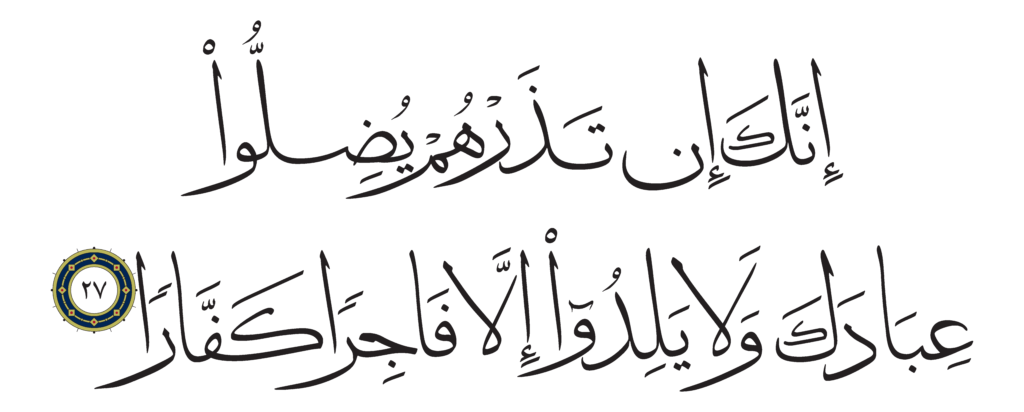 إِنَّكَ إِن تَذَرْهُمْ يُضِلُّوا۟
عِبَادَكَ وَلَا يَلِدُوٓا۟ إِلَّا فَاجِرًا كَفَّارًا ٢٧